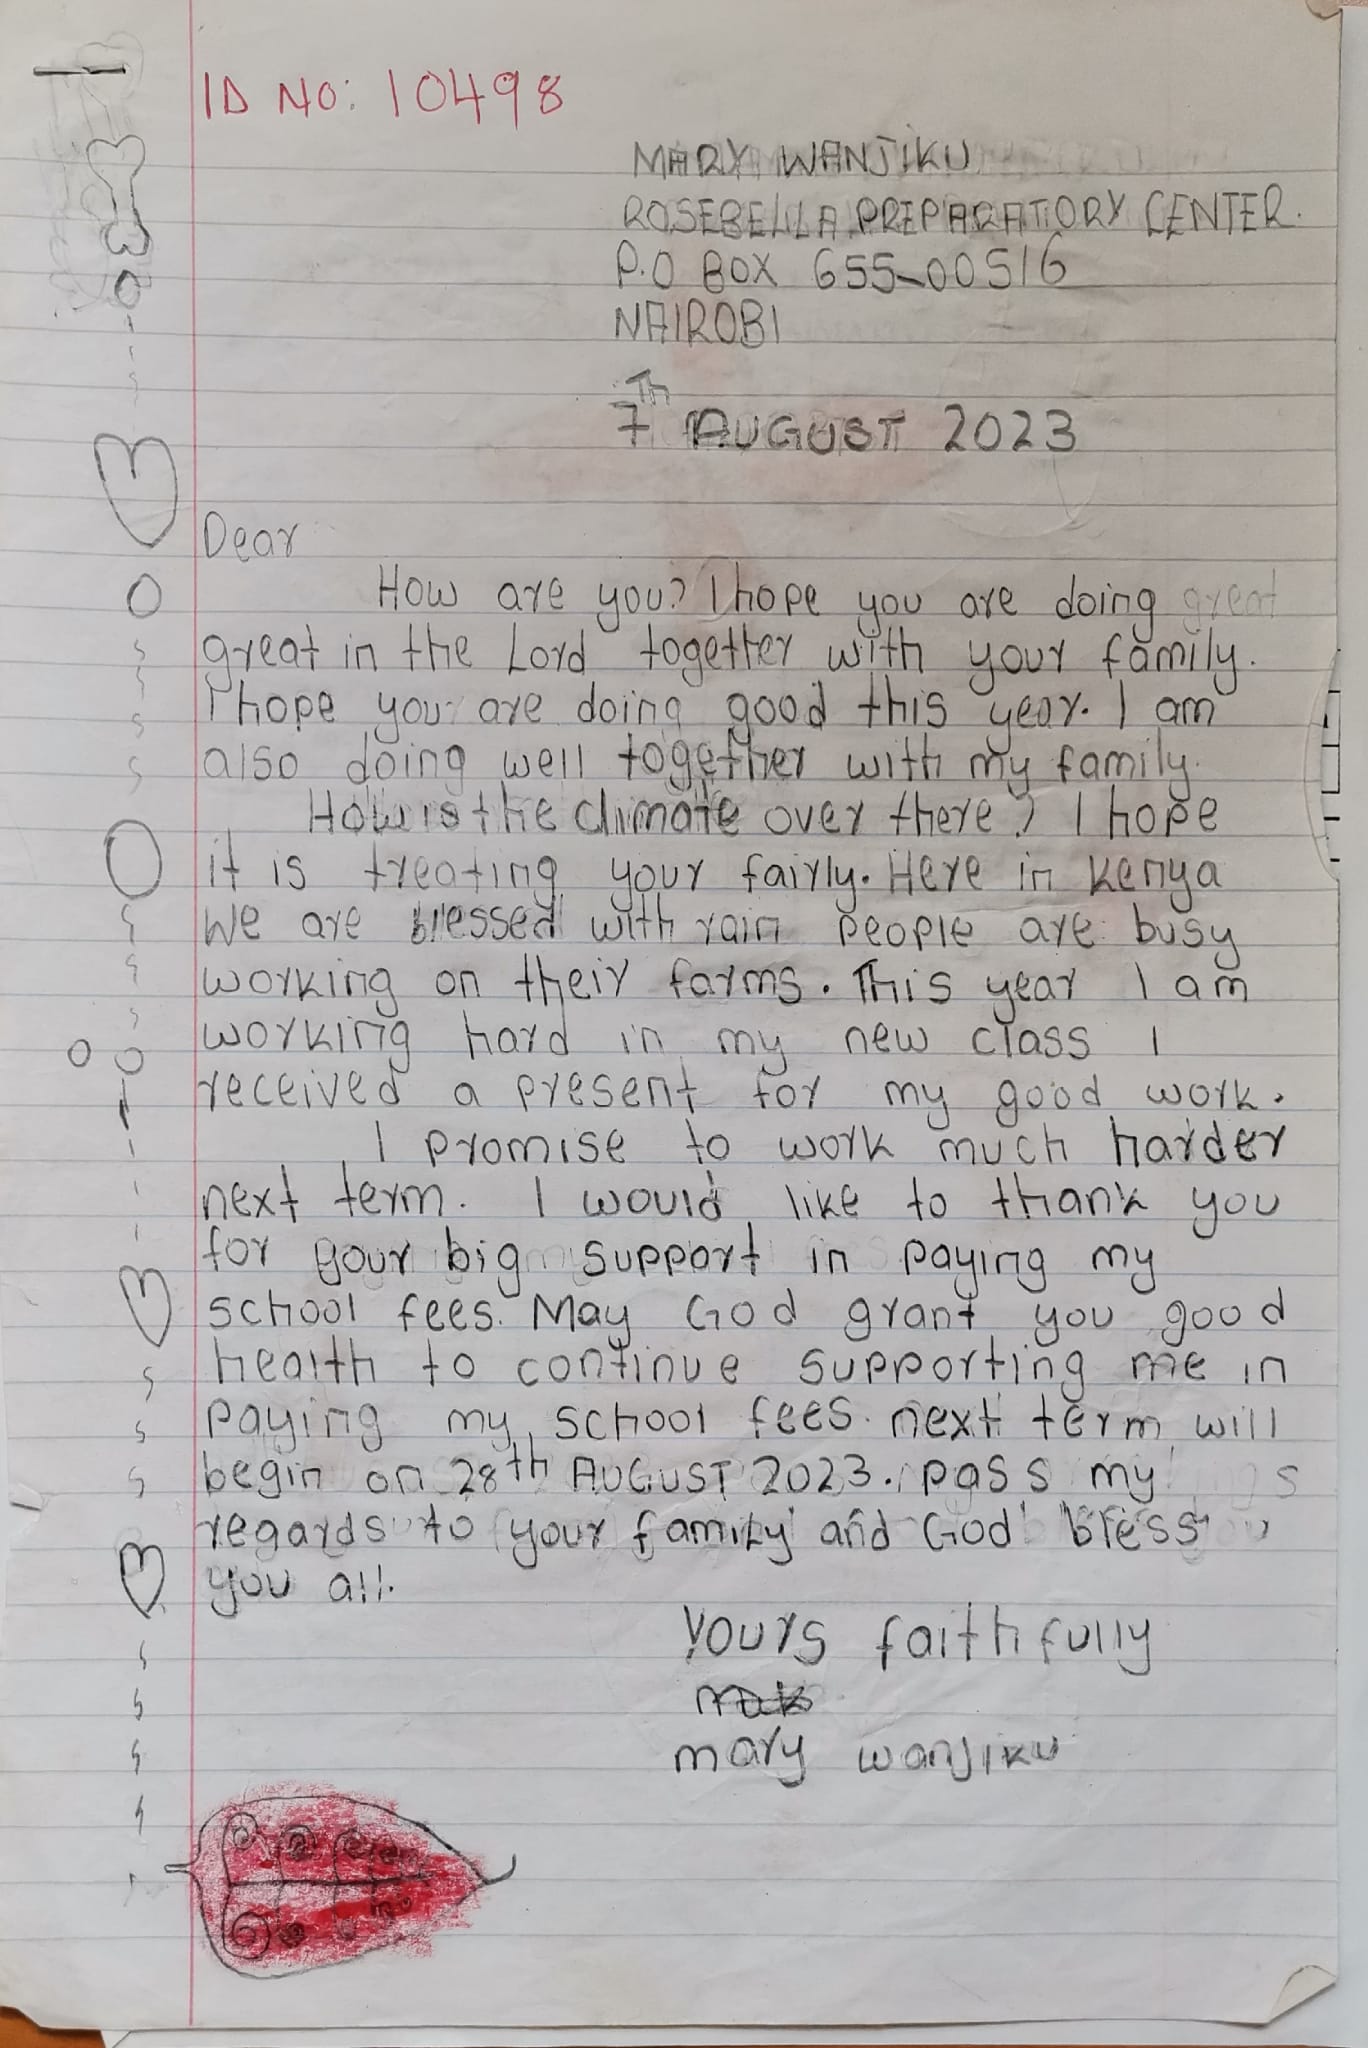 ID NO: 10498
MARY WANJIKU
ROSEBELLA PREPARATORY CENTER.
P.O BOX 655-00516
NAIROBI
7Th AUGUST 2023
Dear
How are you? I hope you are doing great
great in the Lord together with your family.
I hope you are doing good this year. I am
also doing well together with my family.
How is the climate over there? I hope
it is treating your fairly. Here in Kenya
We are blessed with rain people are busy
working on their farms. This year I am
working hard in my new class I
received a present for my good work.
I promise to work much harder
next term. I would like to thank you
for your big support in paying my
school fees. May God grant you good
health to continue supporting me in
paying my school fees. next term will
begin on 28th AUGUST 2023. pass my
regards to your family and God bless
you all.
Yours faithfully
mary wanjiku